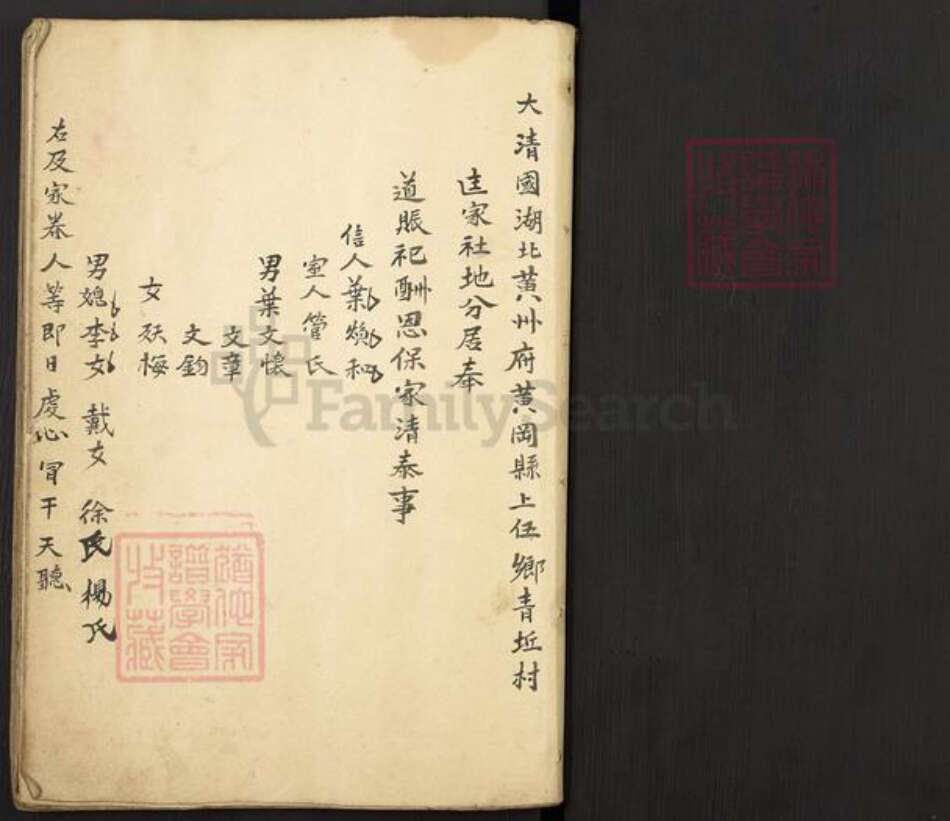 大清國湖北黃州府黃岡縣上伍鄉青坵村
家社地分居奉
道賬祀酬恩保家清泰事
信人葉煥和
室人管氏
男葉文懷
文章
文鈞
女 梅
男媳李女 戴女 徐氏 楊氏
右及家眷人等即日虔心冒干天聽
譜學會
收藏
FamilySearch